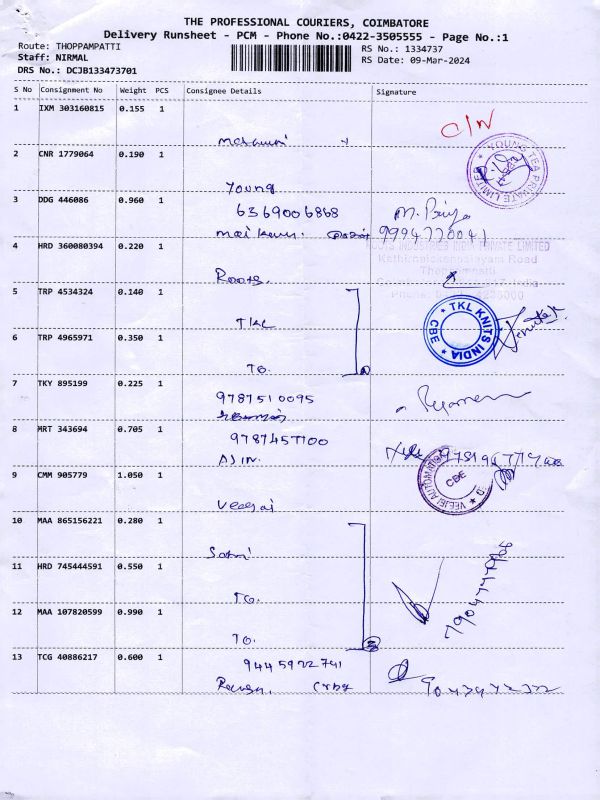 THE PROFESSIONAL COURIERS, COIMBATORE
Delivery Runsheet - PCM - Phone No.:0422-3505555 - Page No.:1
Route: THOPPAMPATTI
RS No.: 1334737
Staff: NIRMAL
RS Date: 09-Mar-2024
DRS No.: DCJB133473701
S No Consignment No Weight PCS Consignee Details Signature
1 IXM 303160815 0.155 1
C/N
2 CNR 1779064 0.190 1
YOUNG TEA PRIVATE LIMITED
Young
3 DDG 446086 0.960 1
6369006868
M. Priya
9994770041
4 HRD 360080394 0.220 1
ROOTS INDUSTRIES INDIA PRIVATE LIMITED
Thoppampatti
Roots.
5 TRP 4534324 0.140 1
TKL
TKL KNITS INDIA CBE
6 TRP 4965971 0.350 1
To.
7 TKY 895199 0.225 1
9787510095
8 MRT 343694 0.705 1
9787457100
AJIN.
9 CMM 905779 1.050 1
VEEJAI AUTOMATION CBE
Veejai
10 MAA 865156221 0.280 1
11 HRD 745444591 0.550 1
To.
12 MAA 107820599 0.990 1
To.
3
13 TCG 40886217 0.600 1
9445922741